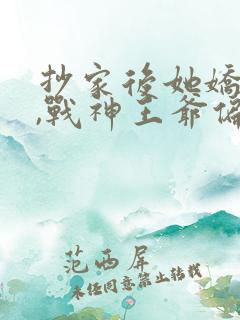 抄家後她嬌
,戰神王爺偏
范西屏
未經同意禁止轉載